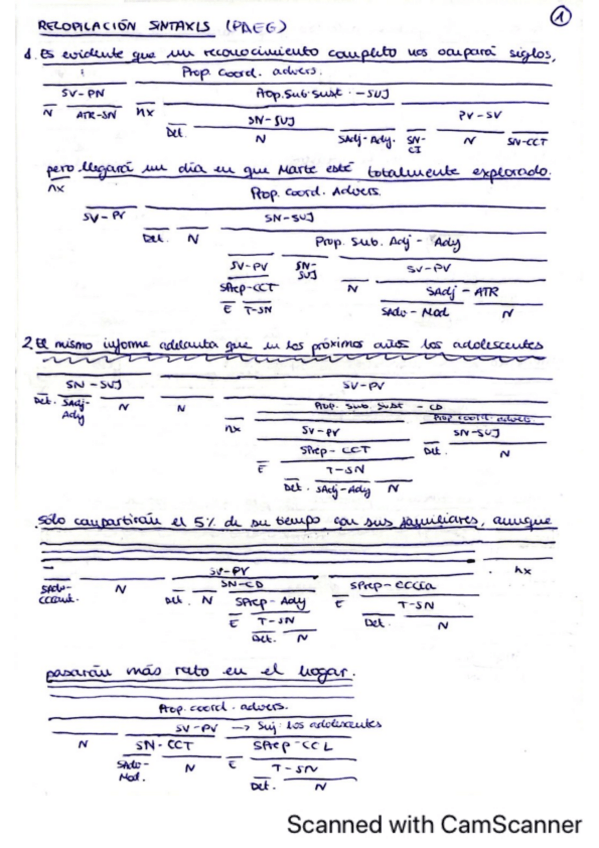 RECOPILACIÓN SINTAXIS (PAEG)
1
1. Es evidente que un reconocimiento completo nos ocupará siglos,
Prop. Coord. advers.
SV-PN Prop. Sub. Sust. - SUJ
N ATR-SN nx SN-SUJ PV-SV
Det. N SAdj-Ady. SN-CI N SN-CCT
pero llegará un día en que Marte esté totalmente explorado.
nx Prop. Coord. Advers.
SV-PV SN-SUJ
Det. N Prop. Sub. Adj - Ady
SV-PV SN-SUJ SV-PV
SPrep-CCT N SAdj - ATR
E T-SN SAdv - Mod N
2. El mismo informe adelanta que en los próximos años los adolescentes
SN-SUJ SV-PV
Det. SAdj-Ady N N Prop. Sub. Sust - CD
nx Prop. coord. advers.
SV-PV SN-SUJ
SPrep-CCT Det. N
E T-SN
Det. SAdj-Ady N
sólo compartirán el 5% de su tiempo con sus familiares, aunque
SV-PV nx
SAdv- N SN-CD SPrep-CCCía
Det. N SPrep-Ady E T-SN
E T-SN Det. N
Det. N
pasarán más rato en el hogar.
Prop. coord. advers.
SV-PV → Suj: los adolescentes
N SN-CCT SPrep-CCL
SAdv-Mod. N E T-SN
Det. N
Scanned with CamScanner